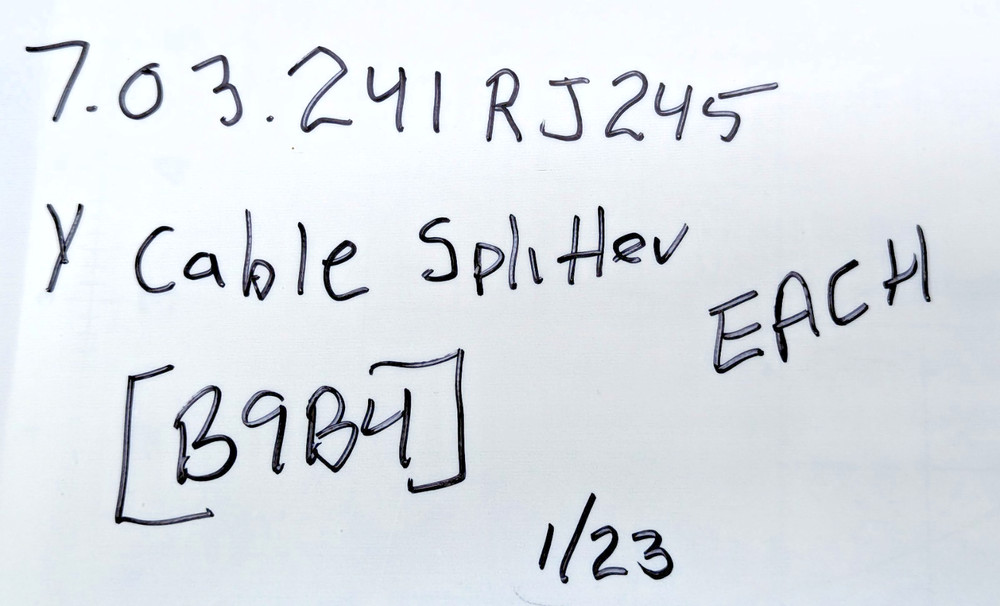 7.03.241 RJ245
Y Cable Splitter
EACH
[B9B4]
1/23